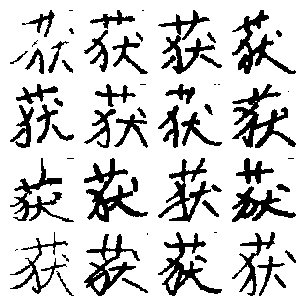 获获获获
获获获获
获获获获
获获获获